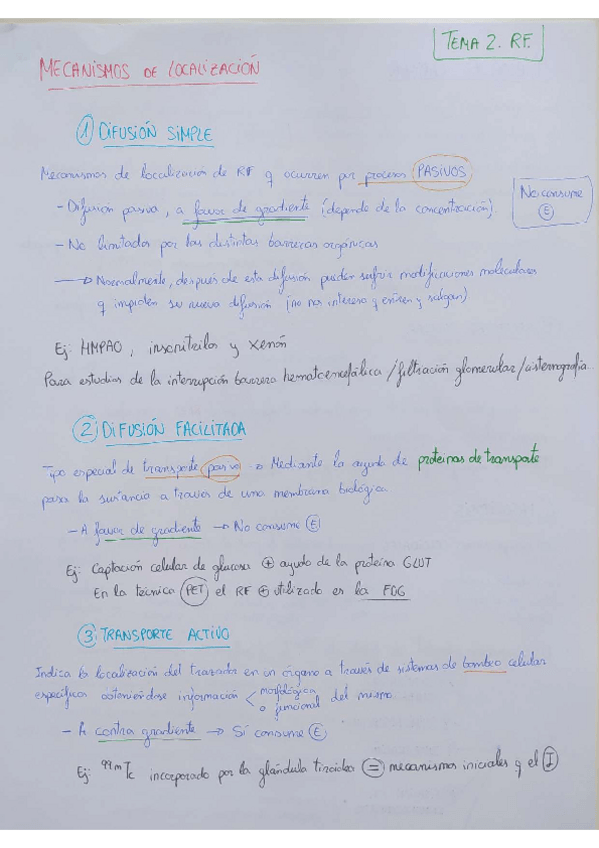 TEMA 2. RF.
MECANISMOS DE LOCALIZACIÓN
① DIFUSIÓN SIMPLE
Mecanismos de localización de RF q ocurren por procesos PASIVOS
- Difusión pasiva, a favor de gradiente (depende de la concentración)
No consume
Ⓔ
- No limitada por las distintas barreras orgánicas
→ Normalmente, después de esta difusión pueden sufrir modificaciones moleculares
q impiden su nueva difusión (no nos interesa q entren y salgan)
Ej: HMPAO, y xenón
Para estudios de la interrupción barrera hematoencefálica / filtración glomerular / cisternografía...
② DIFUSIÓN FACILITADA
Tipo especial de transporte pasivo → Mediante la ayuda de proteínas de transporte
pasa la sustancia a través de una membrana biológica.
- A favor de gradiente → No consume Ⓔ
Ej: Captación celular de glucosa ⊕ ayuda de la proteína GLUT
En la técnica PET el RF ⊕ utilizado es la FDG
③ TRANSPORTE ACTIVO
Indica la localización del trazador en un órgano a través de sistemas de bombeo celular
específicos obteniéndose información < morfológica
o funcional del mismo.
- A contra gradiente → Sí consume Ⓔ
Ej: ⁹⁹ᵐTc incorporado por la glándula tiroidea ⊜ mecanismos iniciales q el Ⓘ